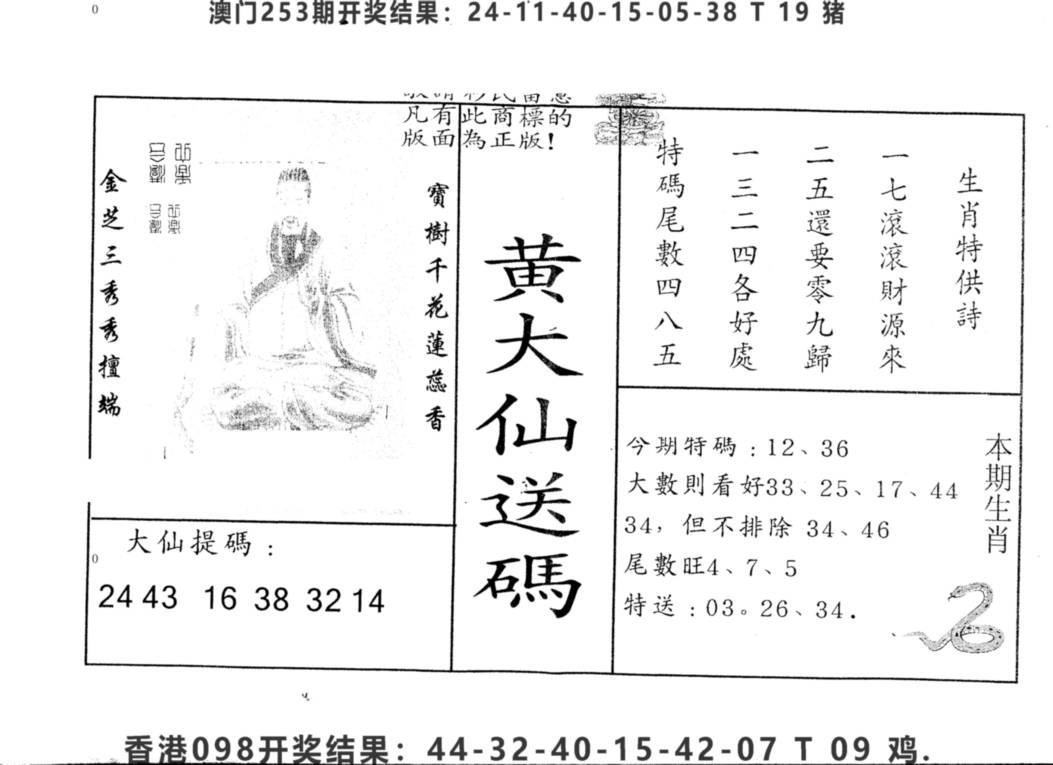 澳门253期开奖结果：24-11-40-15-05-38 T 19 猪
凡有此商標的
版面為正版！
金芝三秀秀擅端
寶樹千花蓮蕊香
黄大仙送碼
生肖特供詩
一七滾滾財源來
二五還要零九歸
一三二四各好處
特碼尾數四八五
大仙提碼：
24 43 16 38 32 14
本期生肖
今期特碼：12、36
大數則看好33、25、17、44
34，但不排除 34、46
尾數旺4、7、5
特送：03。26、34.
香港098开奖结果：44-32-40-15-42-07 T 09 鸡.